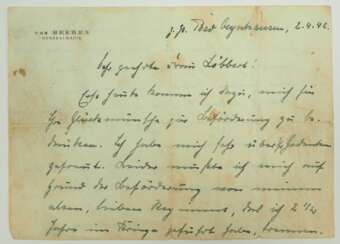 VON HEEREN
GENERALMAJOR
z. Zt. Bad Oeynhausen, 2.4.42.
Sehr geehrte Frau Löbbert!
Erst heute komme ich dazu, mich für
Ihre Glückwünsche zur Beförderung zu be-
danken. Ich habe mich sehr über Ihr Gedenken
gefreut. Leider musste ich mich auf
Grund der Beförderung von meinem
alten, lieben Regiment, das ich 2 1/2
Jahre im Kriege geführt habe, trennen.